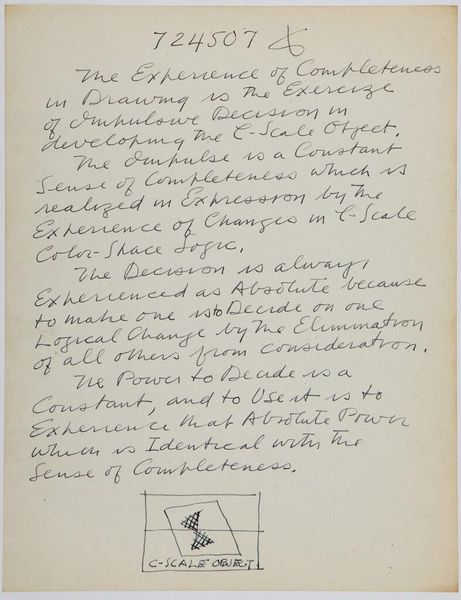 724507
The Experience of Completeness
in Drawing is the Exercize
of Impulsive Decision in
developing the C-Scale Object.
The Impulse is a Constant
Sense of Completeness which is
realized in Expression by the
Experience of Changes in C-Scale
Color-Space Logic.
The Decision is always
Experienced as Absolute because
to make one is to Decide on one
Logical Change by the Elimination
of all others from consideration.
The Power to Decide is a
Constant, and to Use it is to
Experience that Absolute Power
which is Identical with the
Sense of Completeness.
C-SCALE OBJECT.